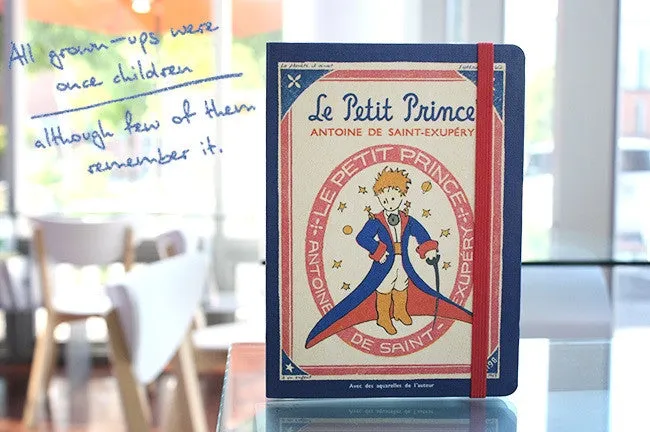 All grown-ups were
once children
although few of them
remember it.
Le Petit Prince
ANTOINE DE SAINT-EXUPÉRY
LE PETIT PRINCE
ANTOINE DE SAINT-EXUPÉRY
Avec des aquarelles de l'auteur